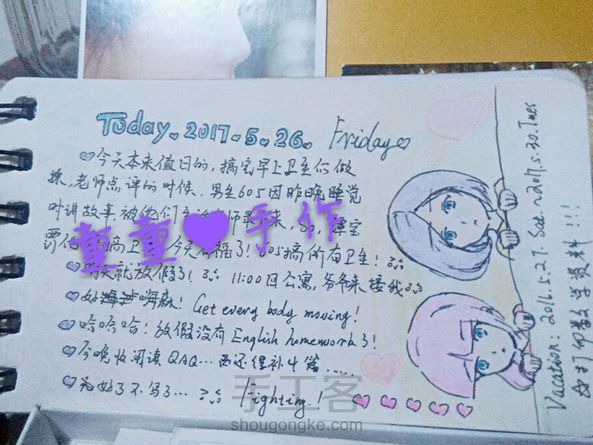 Today. 2017. 5. 26. Friday
今天本来值日的，搞完早上卫生们做
操，老师点评的时候，男生605因昨晚睡觉
时讲故事被他们
罚他 搞卫 今天 福了！605搞所有卫生！
明天就放假了！11:00回公寓，爷爷来接我
好 嗨森！Get every body moving!
哈哈哈！放假没有English homework了！
今晚 阅读QAQ... 还得补4篇......
不写了... Fighting!
童童💜手作
Vacation: 2016.5.27. Sat. ~ 2017.5.30. Tues
打印数学资料!!!
手工客
shougongke.com